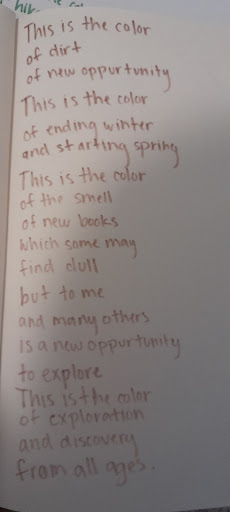 hik
This is the color
of dirt
of new oppurtunity
This is the color
of ending winter
and starting spring
This is the color
of the smell
of new books
which some may
find dull
but to me
and many others
is a new oppurtunity
to explore
This is the color
of exploration
and discovery
from all ages.